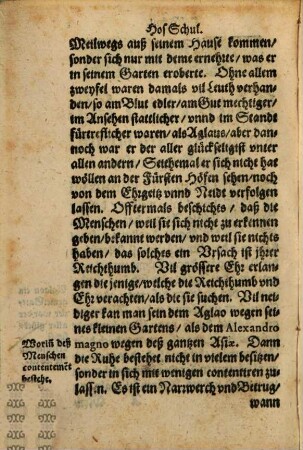 Hof Schul.
Meilwegs auß seinem Hause kommen/
sonder sich nur mit deme ernehrte/ was er
in seinem Garten eroberte. Ohne allem
zweyfel waren damals vil Leuth verhan-
den/ so am Blut edler/ am Gut mechtiger/
im Ansehen stattlicher/ vnnd im Standt
fürtreflicher waren/ als Aglaus/ aber dan-
noch war er der aller glückseligist vnter
allen andern/ Seithemal er sich nicht hat
wöllen an der Fürsten Höfen sehen/ noch
von dem Ehrgeitz vnnd Neidt verfolgen
lassen. Offtermals beschichts/ daß die
Menschen/ weil sie sich nicht zu erkennen
geben/ bekannt werden/ vnd weil sie nichts
haben/ das solches ein Vrsach ist jhrer
Reichthumb. Vil grössere Ehr erlan-
gen die jenige/ welche die Reichthumb vnd
Ehr verachten/ als die sie suchen. Vil nei-
diger kan man sein dem Aglao wegen sei-
nes kleinen Gartens/ als dem Alexandro
magno wegen deß gantzen Asiæ. Dann
die Ruhe bestehet nicht in vielem besitzen/
sonder in sich mit wenigen contentiren zu-
lassen. Es ist ein Narrwerch vnd Betrug/
wann
Woriñ deß
Menschen
contentemēt
bestehe.